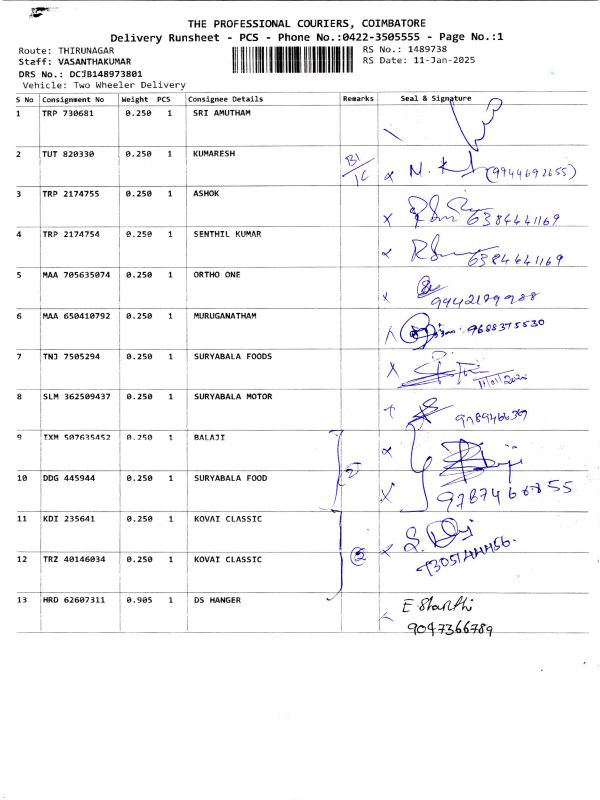 THE PROFESSIONAL COURIERS, COIMBATORE
Delivery Runsheet - PCS - Phone No.:0422-3505555 - Page No.:1
Route: THIRUNAGAR RS No.: 1489738
Staff: VASANTHAKUMAR RS Date: 11-Jan-2025
DRS No.: DCJB148973801
Vehicle: Two Wheeler Delivery
S No Consignment No Weight PCS Consignee Details Remarks Seal & Signature
1 TRP 730681 0.250 1 SRI AMUTHAM
2 TUT 820330 0.250 1 KUMARESH (9944692655)
3 TRP 2174755 0.250 1 ASHOK 6384441169
4 TRP 2174754 0.250 1 SENTHIL KUMAR 6384441169
5 MAA 705635074 0.250 1 ORTHO ONE
6 MAA 650410792 0.250 1 MURUGANATHAM 9688375530
7 TNJ 7505294 0.250 1 SURYABALA FOODS
8 SLM 362509437 0.250 1 SURYABALA MOTOR
9 IXM 507635452 0.250 1 BALAJI
10 DDG 445944 0.250 1 SURYABALA FOOD
11 KDI 235641 0.250 1 KOVAI CLASSIC
12 TRZ 40146034 0.250 1 KOVAI CLASSIC
13 HRD 62607311 0.905 1 DS HANGER E Sharthi
9047366789